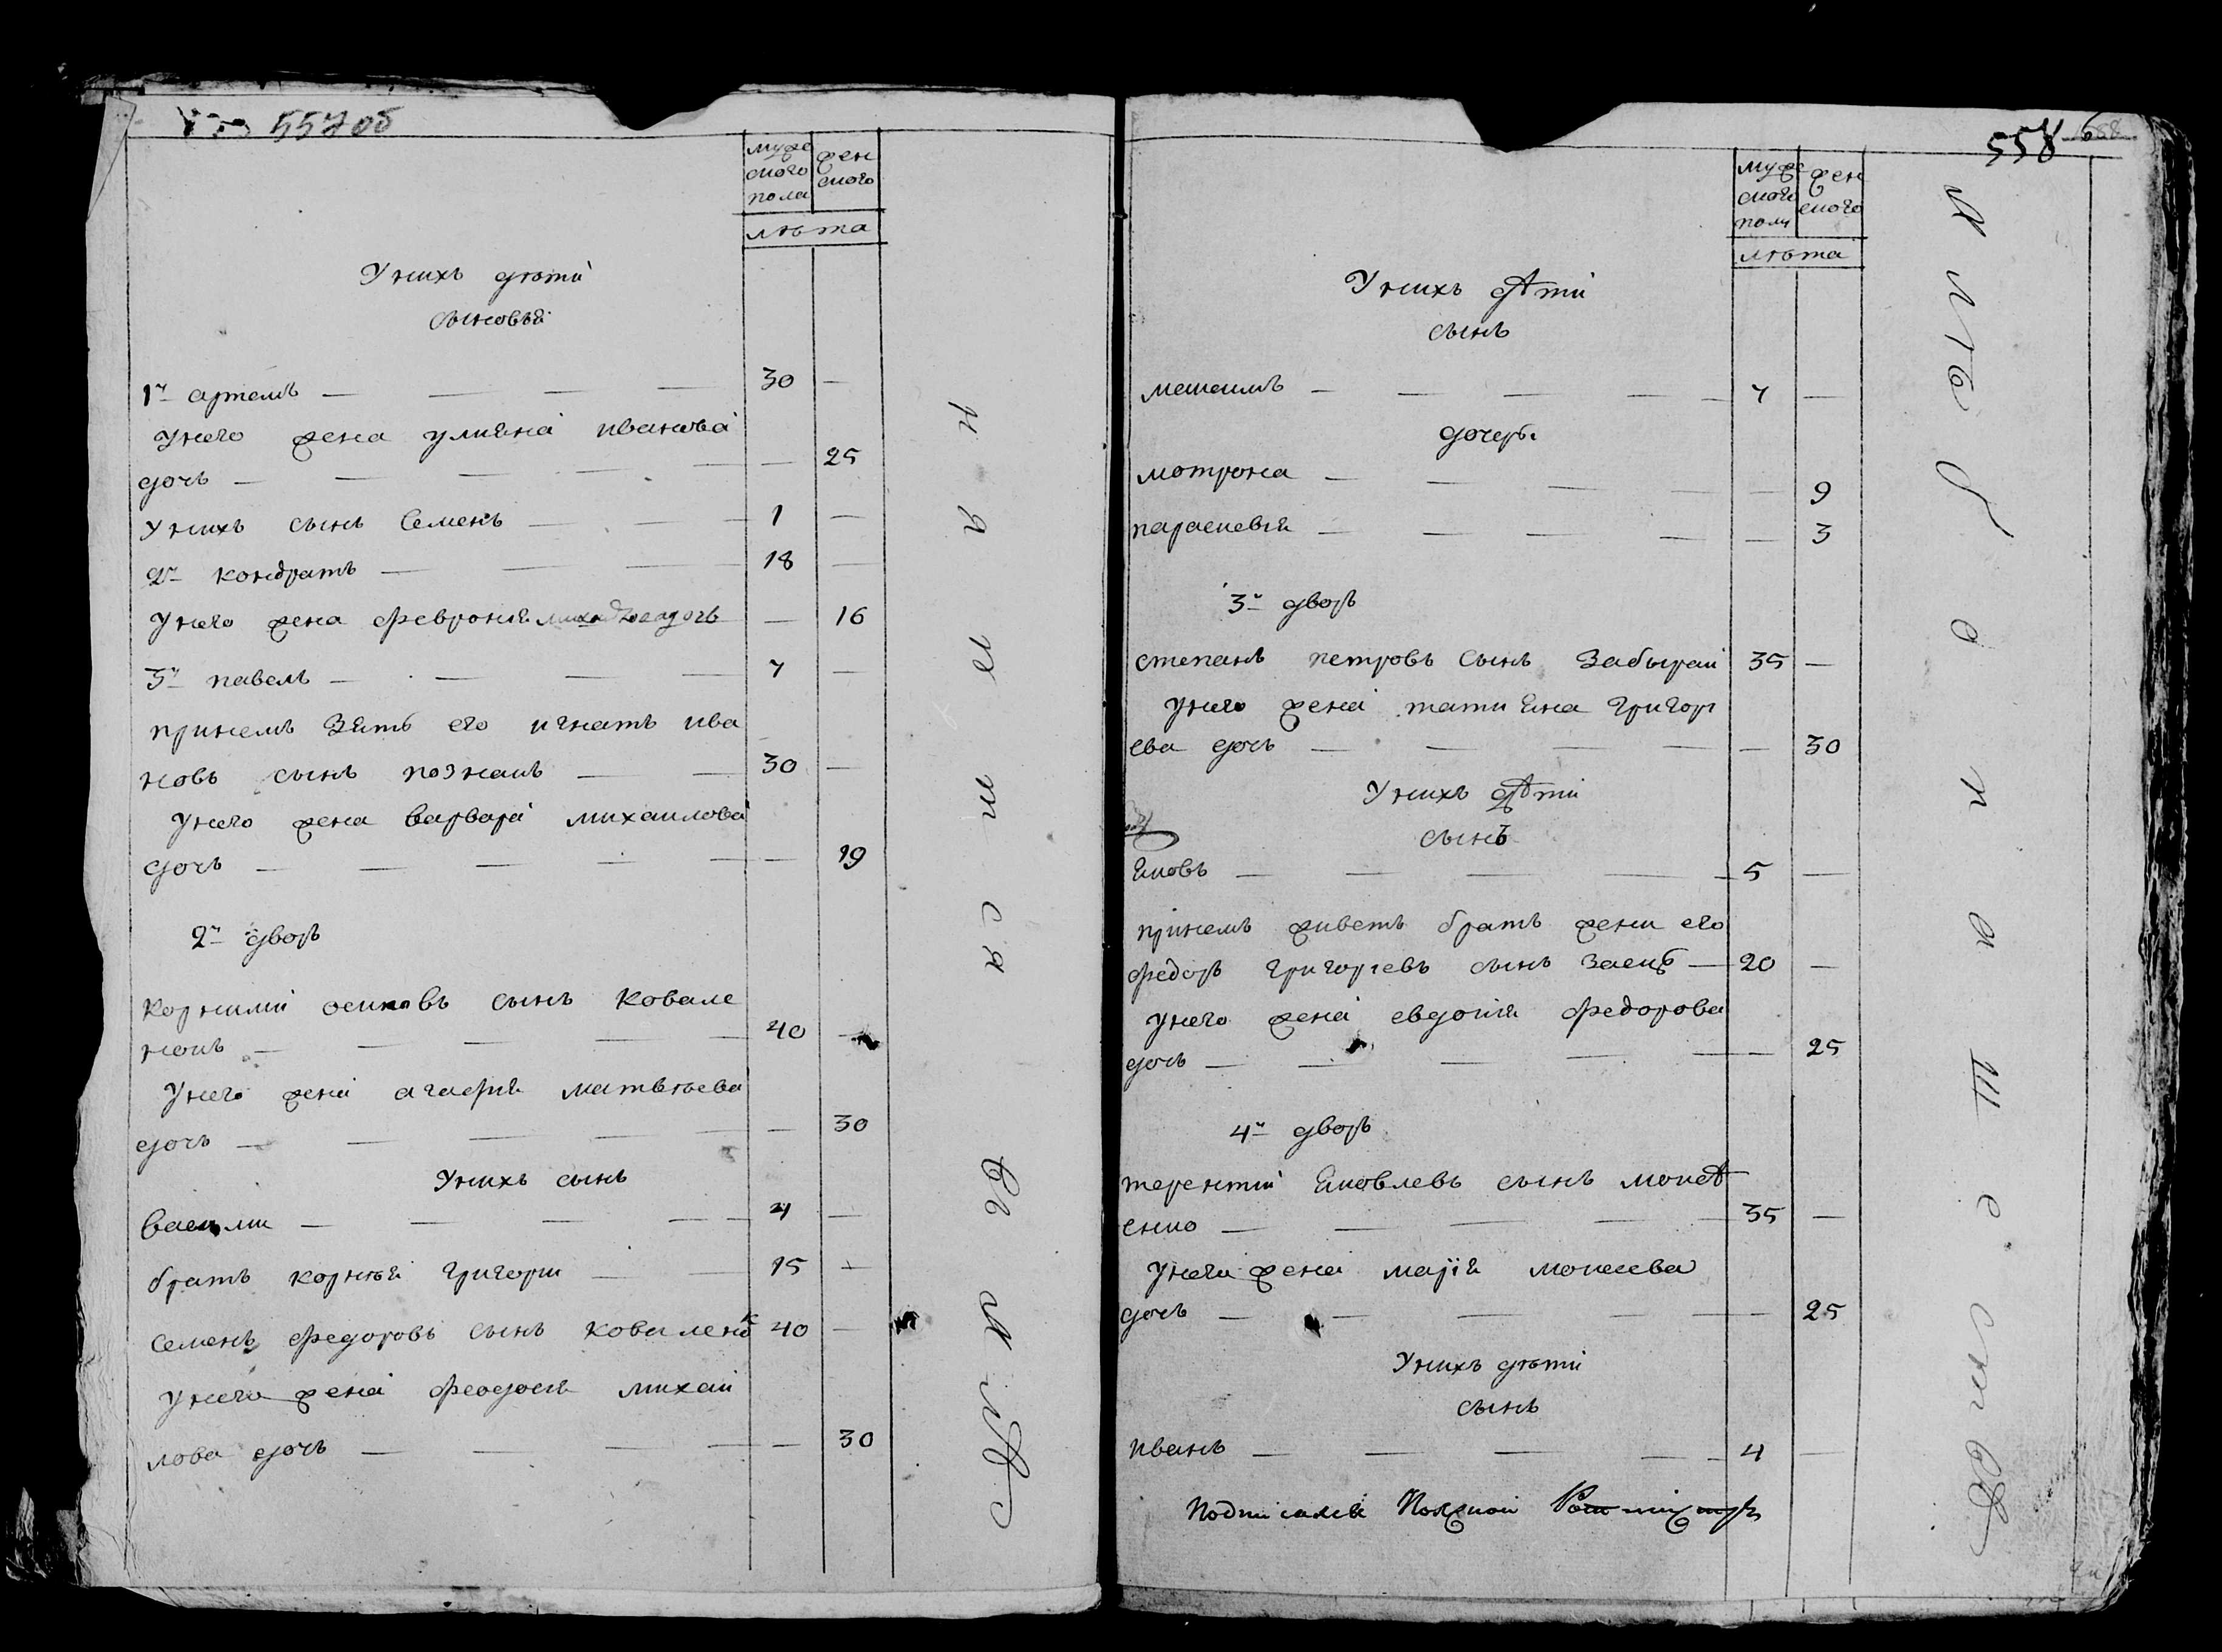 557 об
мужеского пола женского
лѣта
У нихъ дѣти
сыновья
1й артемъ — 30 —
У него жена улияна иванова
дочь — — 25
У нихъ сынъ Семенъ — 1 —
2й кондратъ — 18 —
У него жена феврония дочь — 16
3й павелъ — 7 —
принемъ зять его игнатъ ива
новъ сынъ познакъ — 30 —
У него жена варвара михаилова
дочь — — 19
2й дворъ
Корнилий осиповъ сынъ Ковале
нокъ — 40 —
У него жена агафия матвѣева
дочь — — 30
У нихъ сынъ
василий — 4 —
братъ корнѣя григори — 15 —
Семенъ федоровъ сынъ коваленокъ 40 —
У него жена феодосия михаи
лова дочь — — 30
н а т ш с я
558
мужеского пола женского
лѣта
У нихъ дѣти
сынъ
максимъ — 7 —
дочери
мотрона — — 9
параскевия — — 3
3й дворъ
степанъ петровъ сынъ Забырай 35 —
У него жена татияна григор
ева дочь — — 30
У нихъ дѣти
сынъ
яковъ — 5 —
принемъ живетъ братъ жени его
федоръ григориевъ сынъ заецъ — 20 —
У него жена евдокия федорова
дочь — — 25
4й дворъ
терентий яковлевъ сынъ мокѣ
енко — 35 —
У него жена мария мокиева
дочь — — 25
У нихъ дѣти
сынъ
иванъ — 4 —
Подписался Полковой